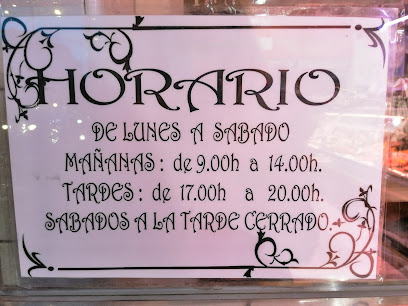 HORARIO
DE LUNES A SABADO
MAÑANAS : de 9.00h a 14.00h.
TARDES : de 17.00h a 20.00h.
SABADOS A LA TARDE CERRADO.